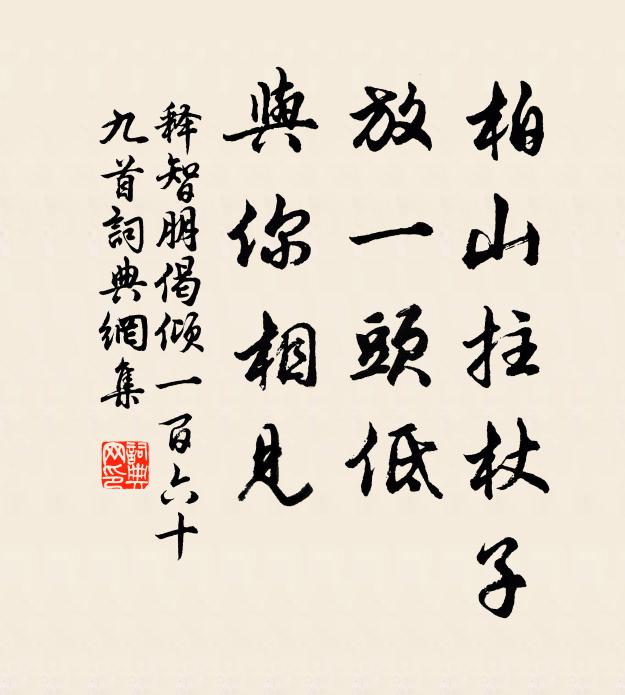 柏山拄杖子
放一頭低
與你相見
释智朋偈倾一百六十
九首詞典網集
詞典
网印